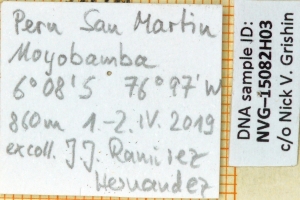 Peru San Martin
Moyobamba
6°08'S 76°97'W
860m 1-2.IV.2019
ex coll. J.J. Ramirez
Hernandez
DNA sample ID:
NVG–15082H03
c/o Nick V. Grishin